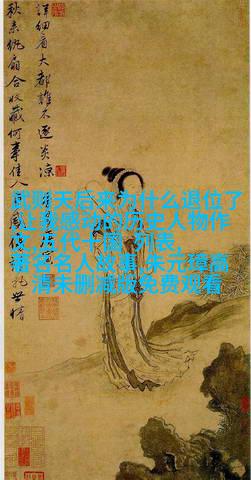 秋来紈扇合收藏何事佳人
感
托世情
詳細看大都誰不逐炎凉
武则天后来为什么退位了
,让我感动的历史人物作
文,五代十国 列表,
著名名人故事,朱元璋高
清未删减版免费观看